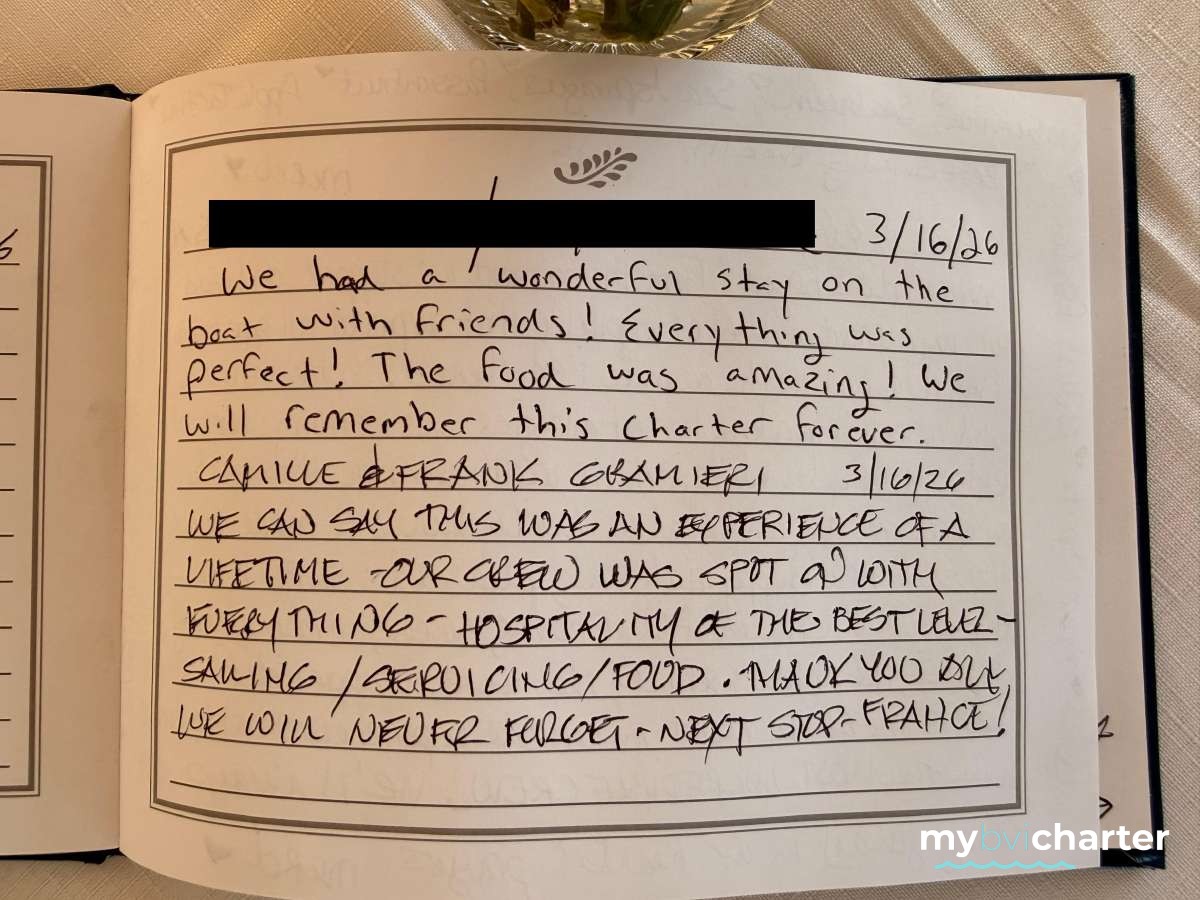 3/16/26
We had a wonderful stay on the
boat with friends! Everything was
perfect! The food was amazing! We
will remember this charter forever.
CAMILLE & FRANK GRAMIERI 3/16/26
WE CAN SAY THIS WAS AN EXPERIENCE OF A
LIFETIME - OUR CREW WAS SPOT ON WITH
EVERYTHING - HOSPITALITY OF THE BEST LEVEL -
SAILING / SERVICING / FOOD. THANK YOU ALL
WE WILL NEVER FORGET - NEXT STOP - FRANCE!
mybvicharter